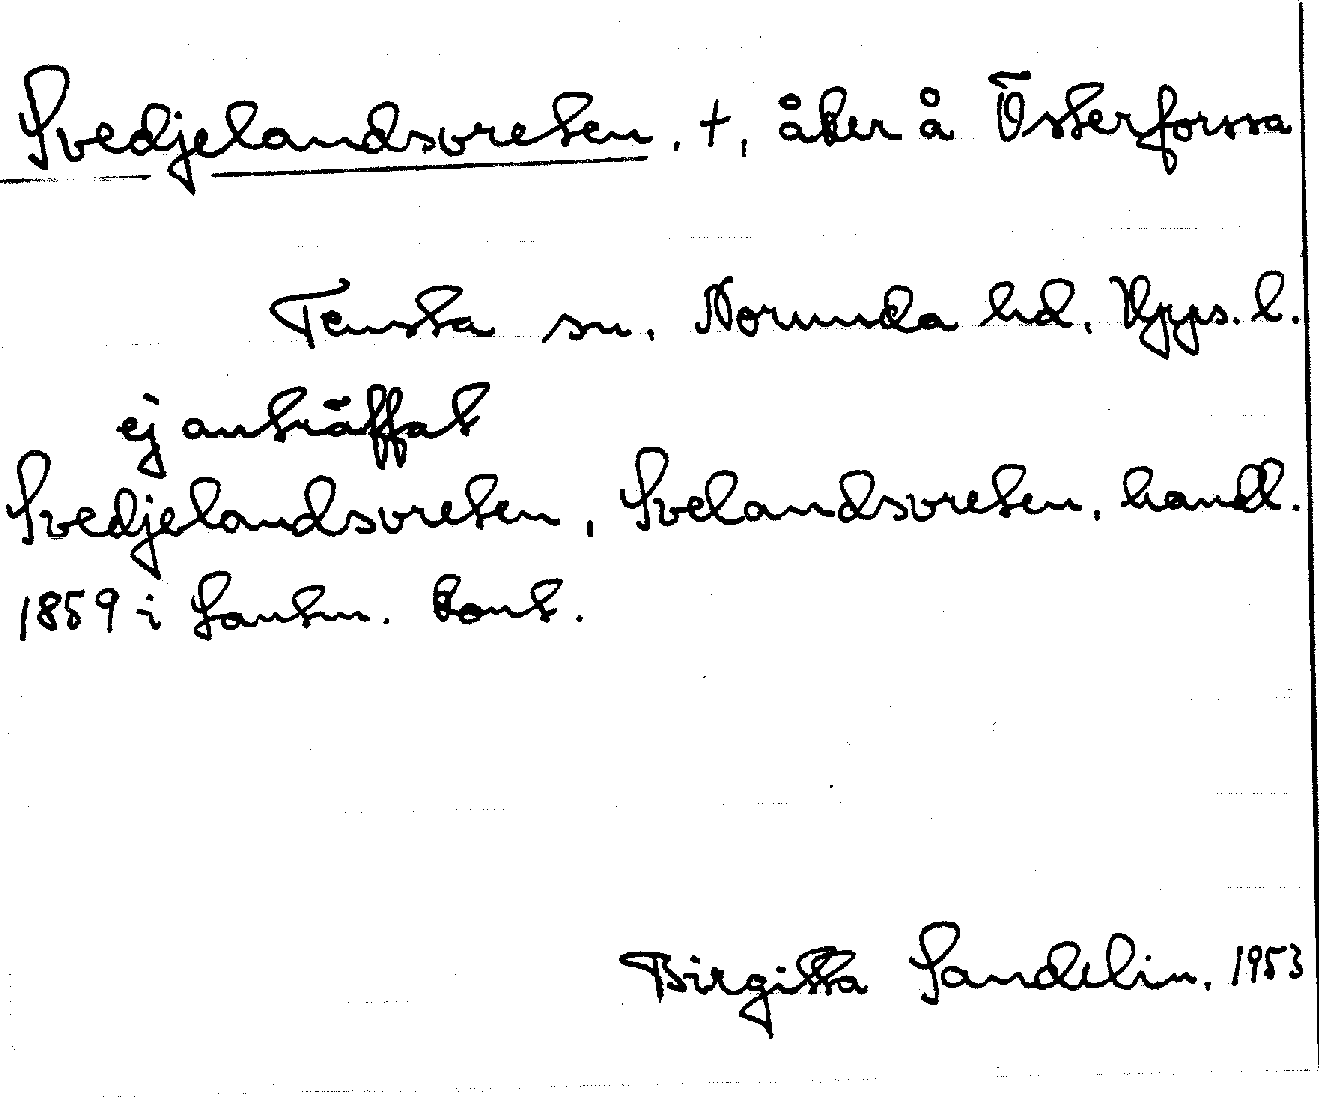 Svedjelandsvreten. +, åker å Österforssa
Tensta sn. Norunda hd. Upps. l.
ej anträffat
Svedjelandsvreten, Svelandsvreten, handl.
1859 i Lantm. kont.
Birgitta Sandelin. 1953